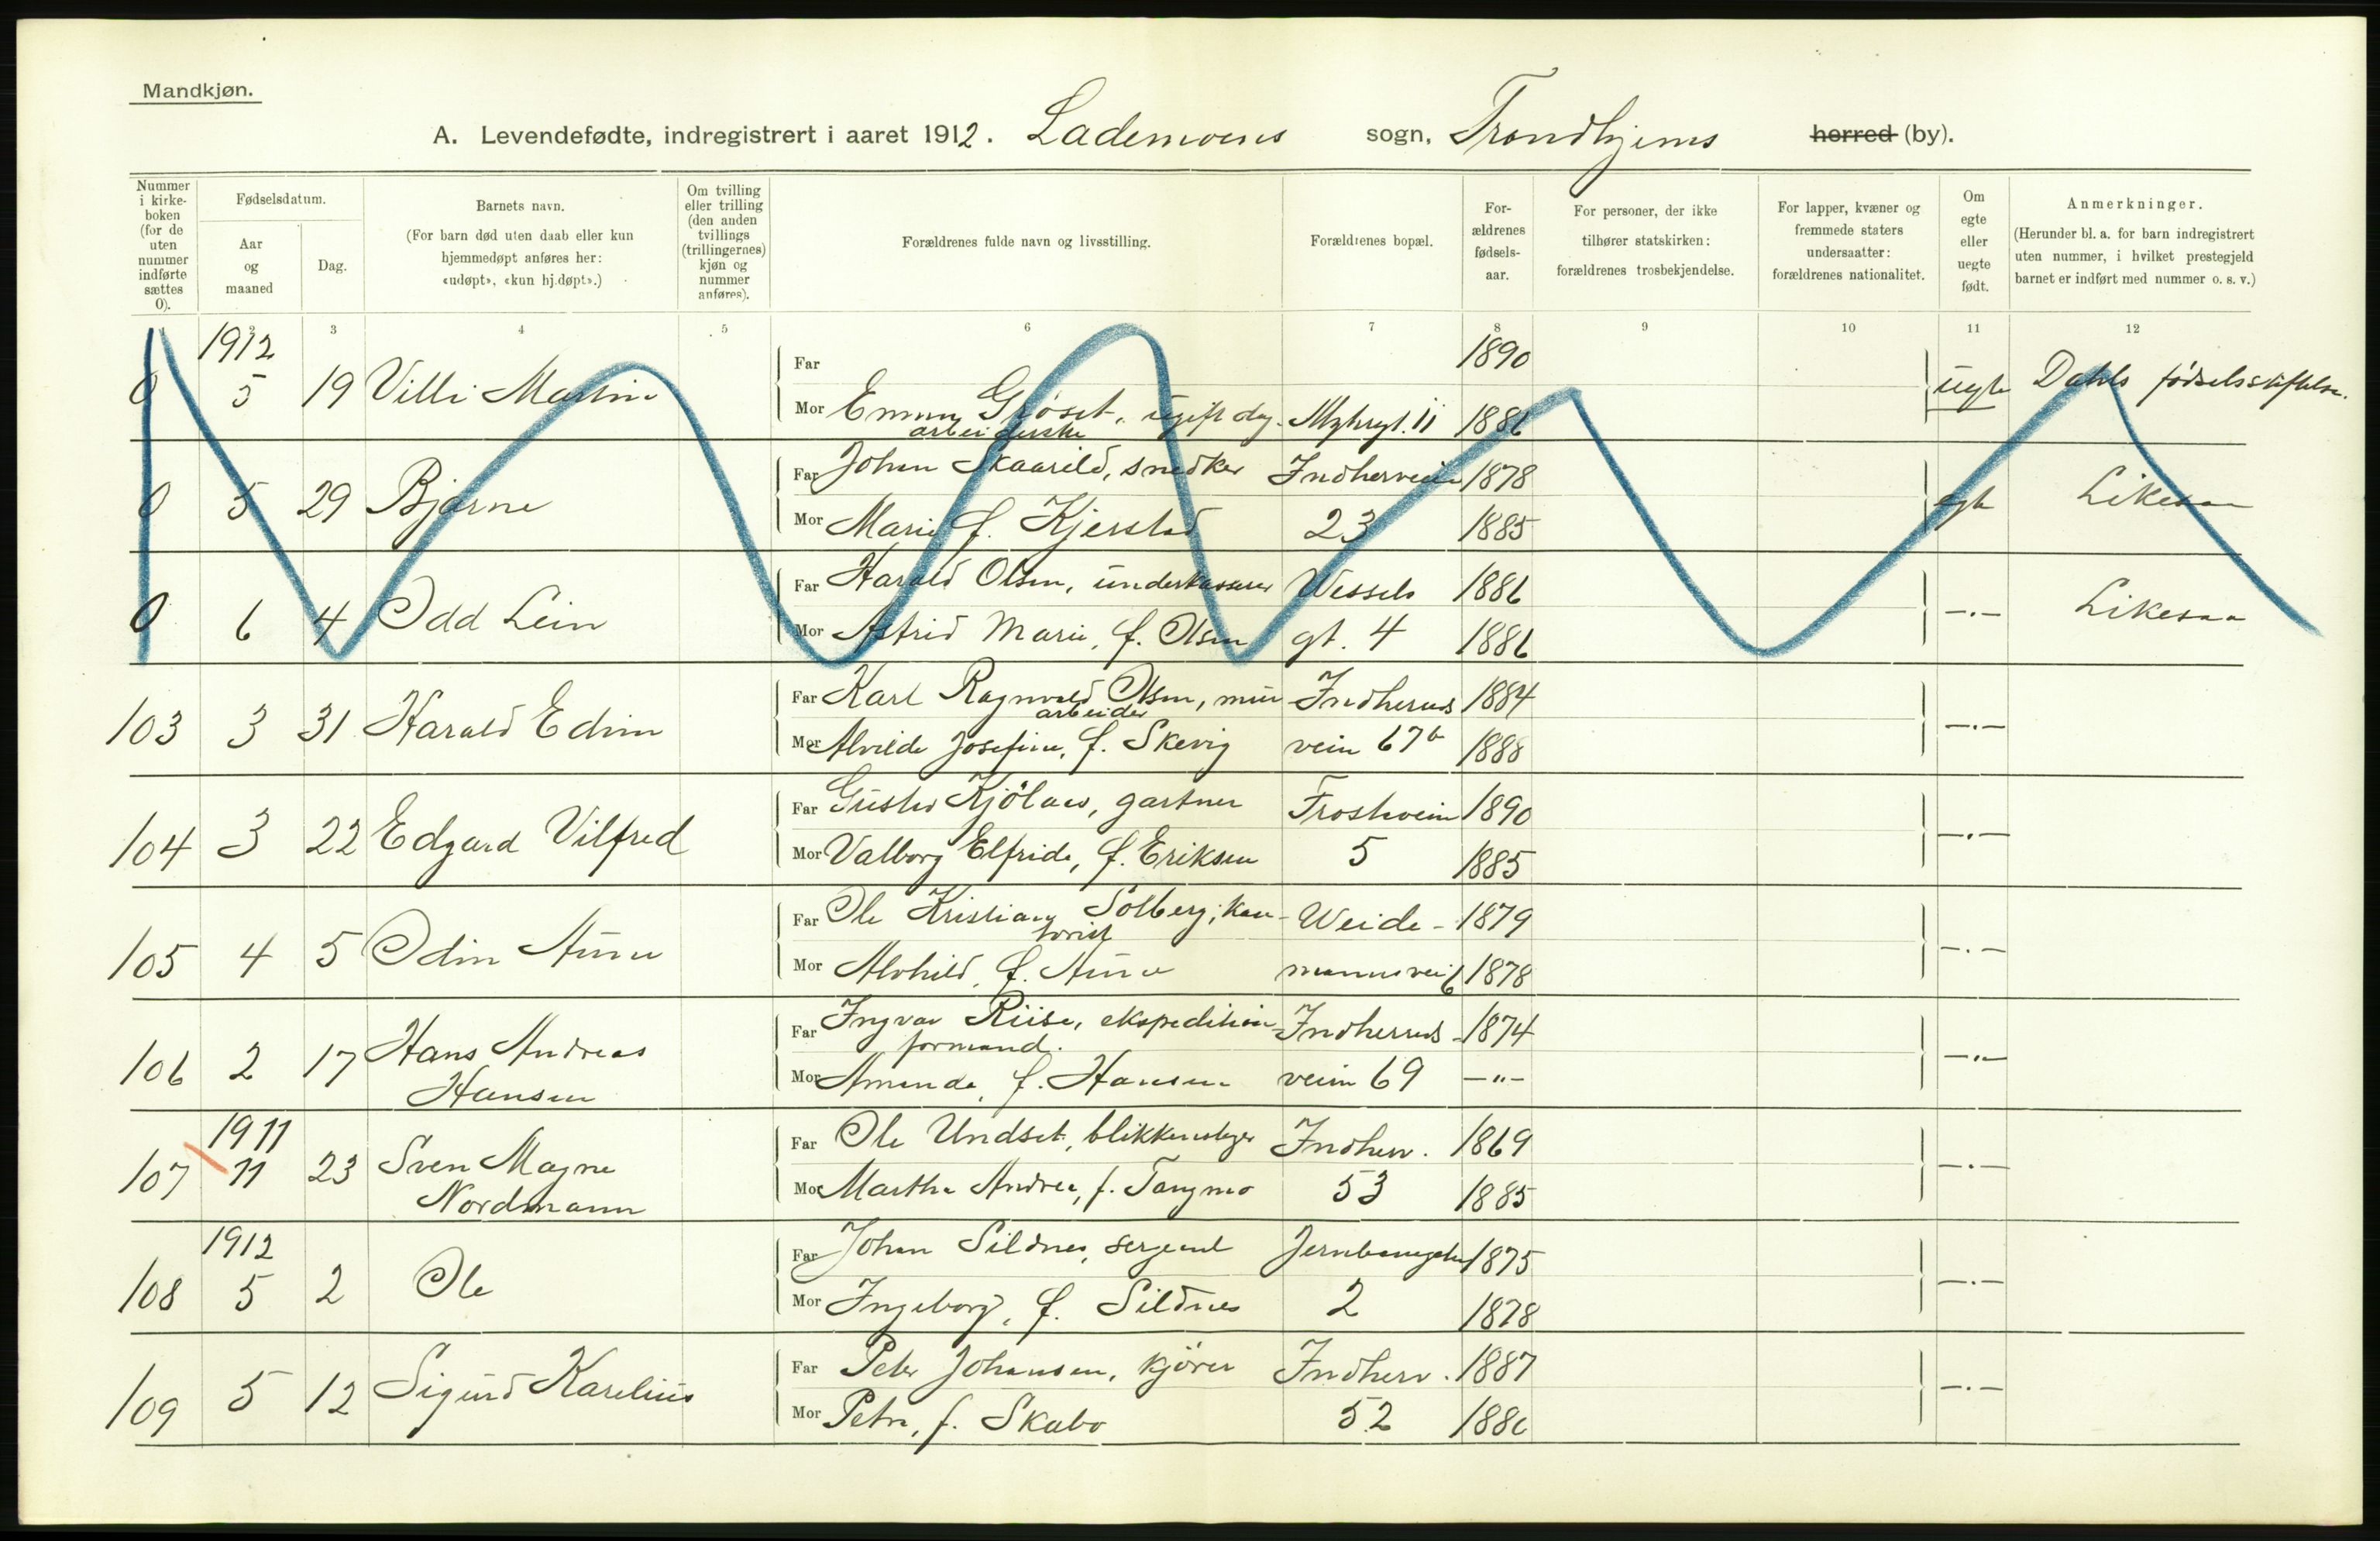 Mandkjøn.
A. Levendefødte, indregistrert i aaret 1912. Lademoens sogn, Trondhjems herred (by).
Nummer i kirke-boken (for de uten nummer indførte sættes 0).
Fødselsdatum.
Aar og maaned
Dag.
Barnets navn.
(For barn død uten daab eller kun hjemmedøpt anføres her: «udøpt», «kun hj.døpt».)
Om tvilling eller trilling (den anden tvillings (trillingernes) kjøn og nummer anføres).
Forældrenes fulde navn og livsstilling.
Forældrenes bopæl.
For-ældrenes fødsels-aar.
For personer, der ikke tilhører statskirken: forældrenes trosbekjendelse.
For lapper, kvæner og fremmede staters undersaatter: forældrenes nationalitet.
Om egte eller uegte født.
Anmerkninger.
(Herunder bl. a. for barn indregistrert uten nummer, i hvilket prestegjeld barnet er indført med nummer o. s. v.)
2 3 4 5 6 7 8 9 10 11 12
1912
Far 1890
0 5 19 Villi
Mor Emma Grøset, ugift dag- 11 1886 uegte Dahls fødselsstiftelse.
arbeiderske
Far Johan Skaarild, snedker Indherveien 1878
0 5 29 Bjarne egte Likesaa
Mor Marie f. Kjerstad 23 1885
Far Harald Olsen, underkasserer Wessels 1886
0 6 4 Odd Lein —.— Likesaa
Mor Astrid Marie, f. Olsen gt. 4 1886
Far Karl Ragnvald Olsen, mur- Indherreds 1884
arbeider
103 3 31 Harald Edvin —.—
Mor Alvilde Josefine, f. Skevig veien 67b 1888
Far Gustav Kjölaas, gartner Frostaveien 1890
104 3 22 Edgard Vilfred —.—
Mor Valborg Elfrida, f. Eriksen 5 1885
Far Ole Kristian Solberg, kon- Weide- 1879
torist
105 4 5 Odin Aune —.—
Mor Alvhild, f. Aune mannsvei 6 1878
Far Ingvar Riise, ekspeditions- Indherreds- 1874
formand.
106 2 17 Hans Andreas —.—
Hansen
Mor Amanda, f. Hansen veien 69 —"—
1911
Far Ole Undset, blikkenslager Indherv. 1869
107 11 23 Sven Magne —.—
Nordmann
Mor Martha Andrea, f. Tangmo 53 1885
1912
Far Johan Sildnes, sergeant Jernbanegaten 1875
108 5 2 Ole —.—
Mor Ingeborg, f. Sildnes 2 1878
Far Peter Johansen, kjører Indherv. 1887
109 5 12 Sigurd Karelius —.—
Mor Petra, f. Skabo 52 1886